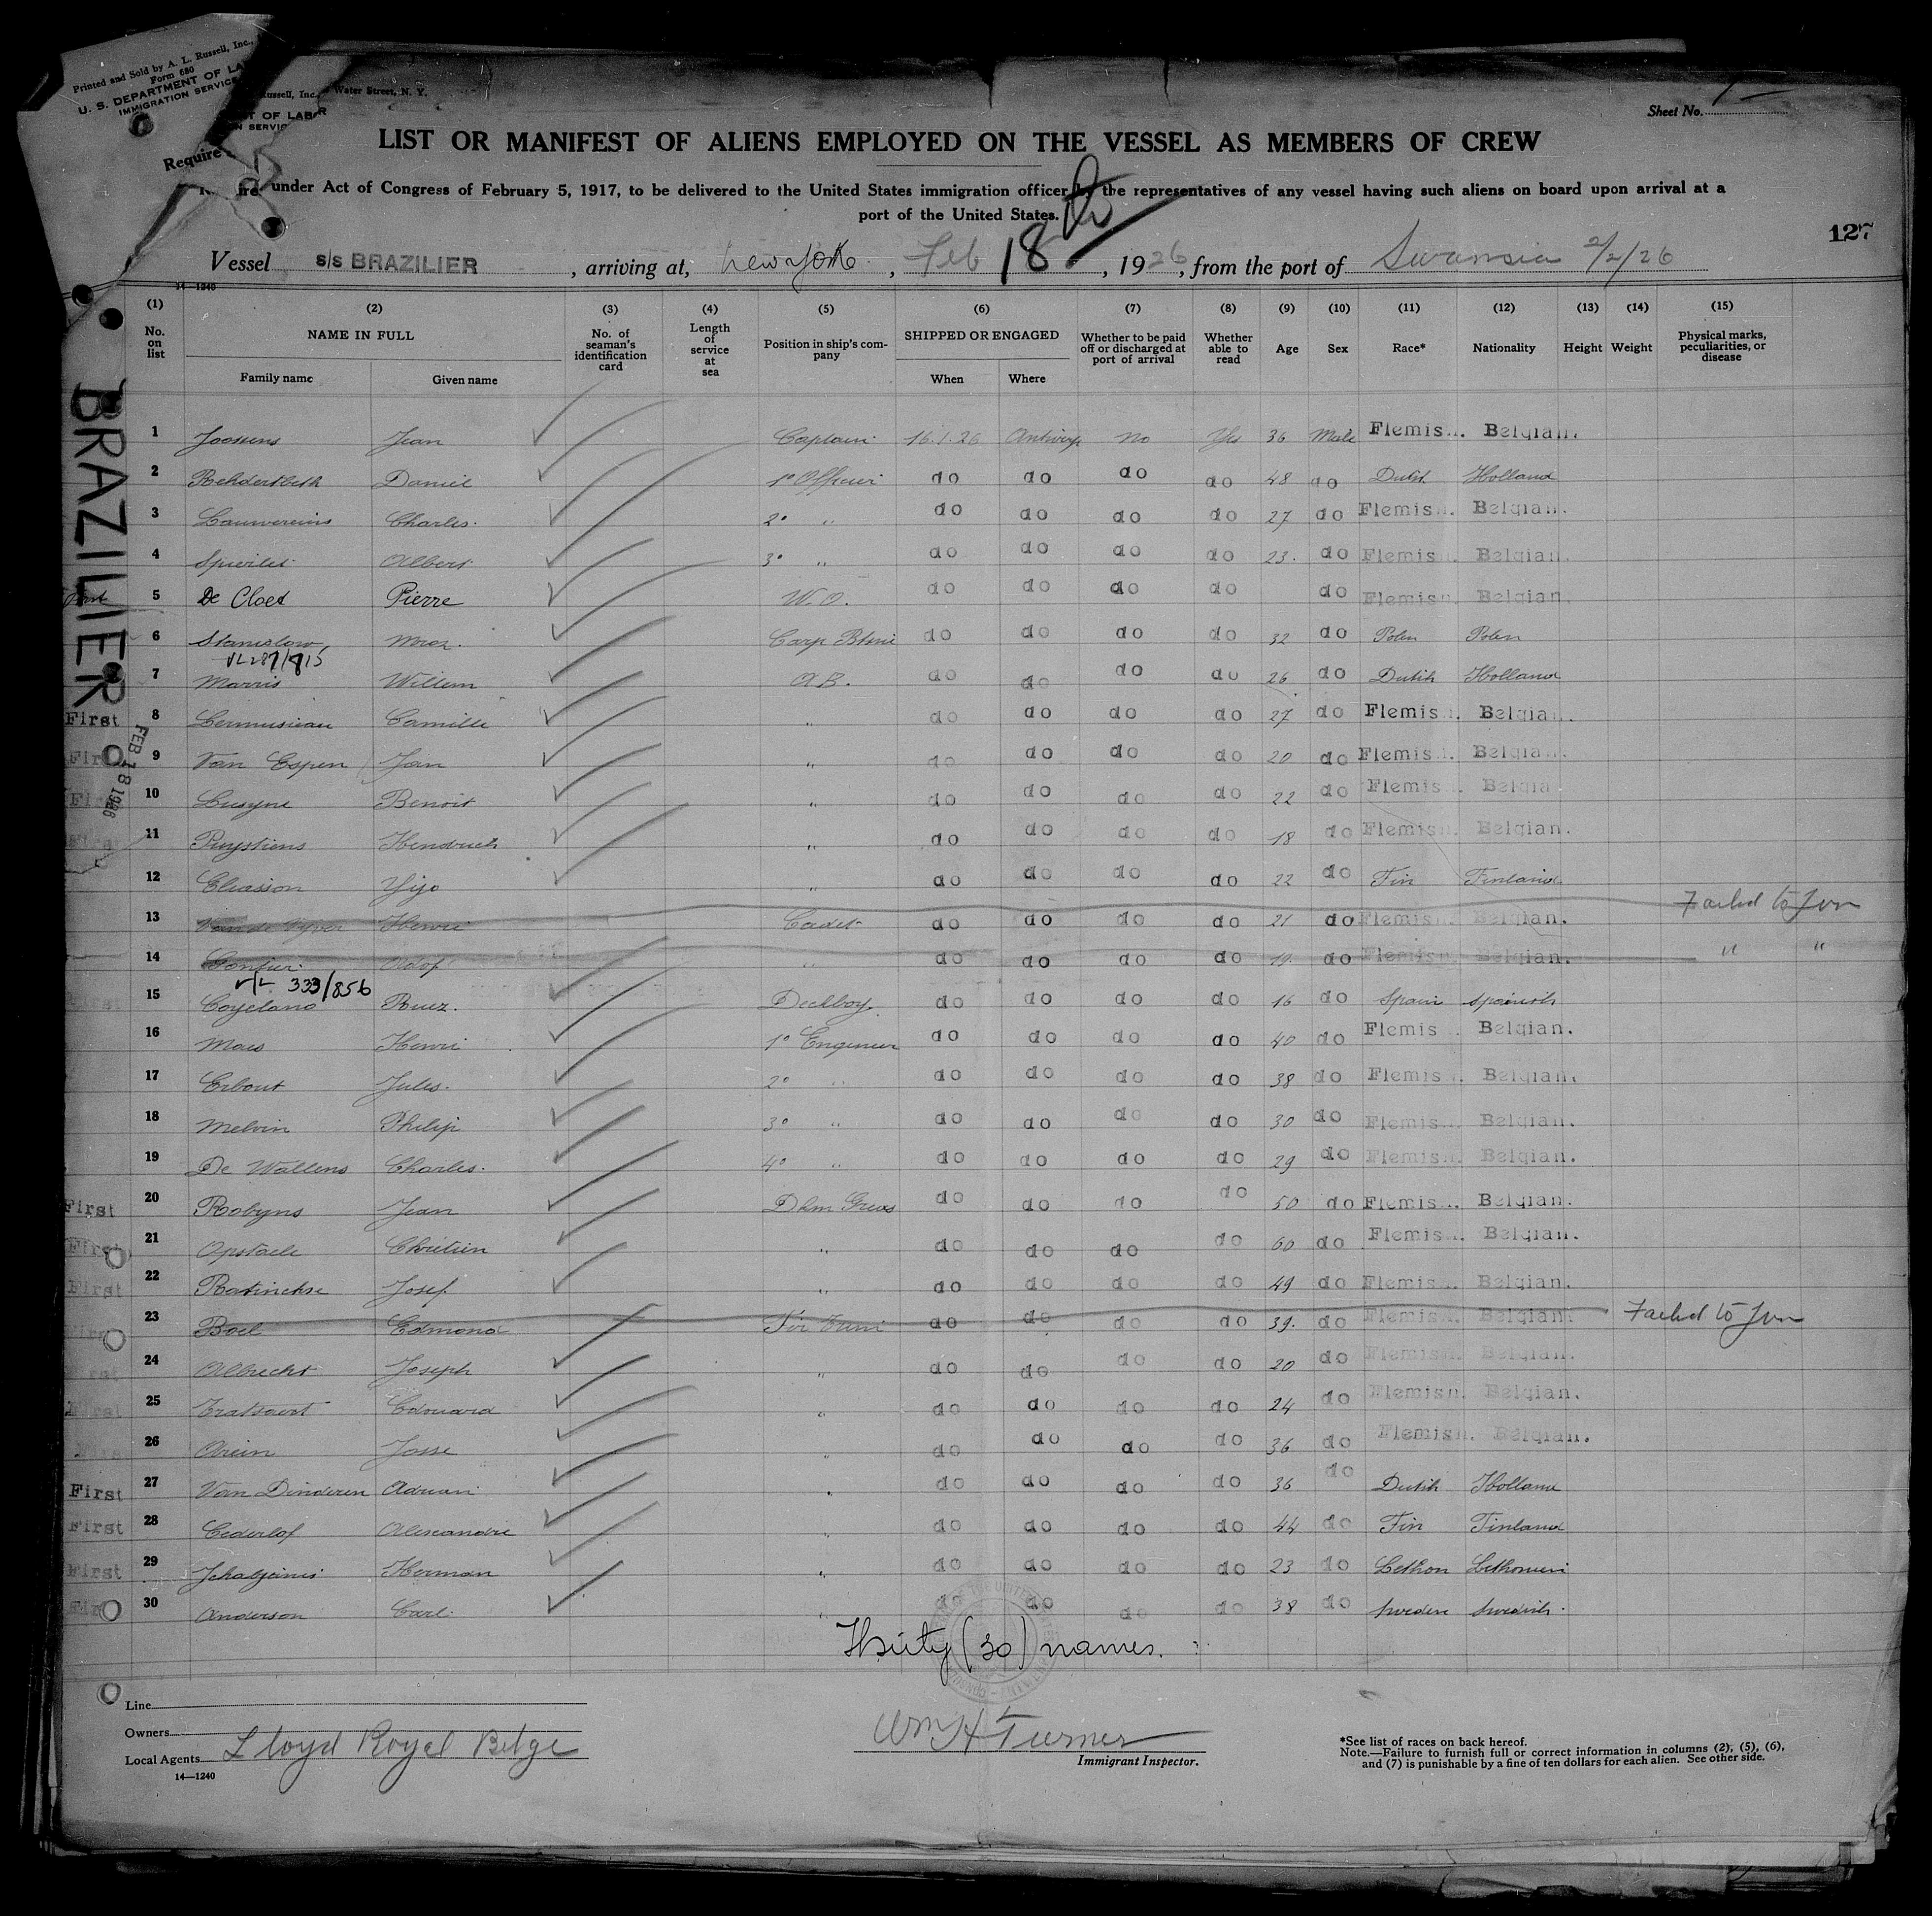 Printed and Sold by A. L. Russell, Inc.,
Form 680
U. S. DEPARTMENT OF LA
IMMIGRATION SERVICE
Russell, Inc., Water Street, N. Y.
T OF LABOR
N SERVIC
Sheet No. 1
LIST OR MANIFEST OF ALIENS EMPLOYED ON THE VESSEL AS MEMBERS OF CREW
Require
under Act of Congress of February 5, 1917, to be delivered to the United States immigration officer by the representatives of any vessel having such aliens on board upon arrival at a
port of the United States.
127
Vessel s/s BRAZILIER, arriving at, New York, Feb 18, 1926, from the port of Swansea 2/2/26
14—1240
(1) (2) (3) (4) (5) (6) (7) (8) (9) (10) (11) (12) (13) (14) (15)
No. on list NAME IN FULL No. of seaman's identification card Length of service at sea Position in ship's company SHIPPED OR ENGAGED Whether to be paid off or discharged at port of arrival Whether able to read Age Sex Race* Nationality Height Weight Physical marks, peculiarities, or disease
Family name Given name When Where
BRAZILIER
FEB 18 1926
1 Joossens Jean Captain 16.1.26 Antwerp no Yes 36 Male Flemish. Belgian.
2 Daniel 1° Officier do do do do 48 do Dutch Holland
3 Lauwereins Charles. 2° " do do do do 27 do Flemish. Belgian.
4 Albert 3° " do do do do 23. do Flemish Belgian.
5 De Cloet Pierre W.O. do do do do do Flemish. Belgian
6 Stanislow Mroz. Carp do do do do 32 do Polen Polen
VL 287/815
7 Marris Willem A.B. do do do do 26 do Dutch Holland
First 8 Camille " do do do do 27 do Flemish. Belgian.
First 9 Van Espen Jan " do do do do 20 do Flemish. Belgian.
First 10 Benoit " do do do do 22 do Flemish Belgia
First 11 Puystiens Hendrich " do do do do 18 do Flemish. Belgian.
12 Eliasson Yijo " do do do do 22 do Fin Finland
13 Van de Vyver Henri Cadet do do do do 21 do Flemish. Belgian. Failed to Join
14 Adof " do do do do 19. do Flemish. Belgian. " "
V/L 333/856
15 Coyelano Ruez. Deckboy. do do do do 16 do Spain Spanish
16 Maes Henri 1° Engineer do do do do 40 do Flemis Belgian.
17 Erbout Jules. 2° " do do do do 38 do Flemish. Belgian.
18 Melvin Philip 3° " do do do do 30 do Flemish. Belgian.
19 De Wallens Charles. 4° " do do do do 29 do Flemish. Belgian.
First 20 Robyns Jean Dkm do do do do 50 do Flemish. Belgian.
First 21 Opstaele Chretien " do do do do 60 do Flemish. Belgian.
First 22 Ratinckse Josef " do do do do 49 do Flemish. Belgian.
First 23 Boel Edmond do do do do 39. do Flemish. Belgian. Failed to Join
First 24 Albrecht Joseph " do do do do 20 do Flemish. Belgian.
First 25 Edouard " do do do do 24 do Flemish. Belgian.
First 26 Josse " do do do do 36 do Flemish. Belgian.
First 27 Van Dinderen Adriaan " do do do do 36 do Dutch Holland
First 28 Cederlof Alexandre " do do do do 44 do Fin Finland
First 29 Herman " do do do do 23 do Lethon
First 30 Anderson Carl. " do do do do 38 do Sweden Swedish.
Thirty (30) names.
Line
Owners
Local Agents Lloyd Royal Belge
14—1240
Wm H Turner
Immigrant Inspector.
*See list of races on back hereof.
Note.—Failure to furnish full or correct information in columns (2), (5), (6),
and (7) is punishable by a fine of ten dollars for each alien. See other side.